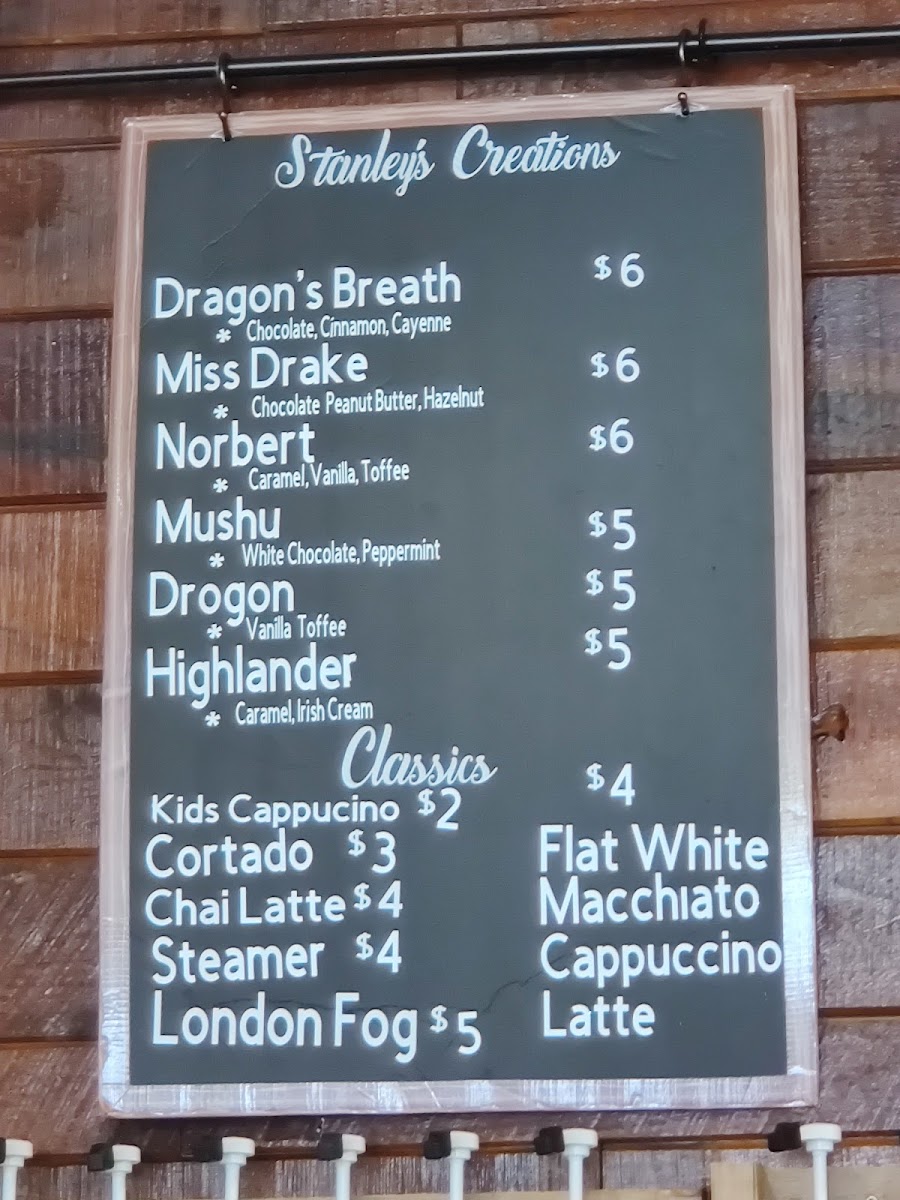 Stanley's Creations
Dragon's Breath $6
* Chocolate, Cinnamon, Cayenne
Miss Drake $6
* Chocolate Peanut Butter, Hazelnut
Norbert $6
* Caramel, Vanilla, Toffee
Mushu $5
* White Chocolate, Peppermint
Drogon $5
* Vanilla Toffee
Highlander $5
* Caramel, Irish Cream
Classics
Kids Cappucino $2
Cortado $3
Chai Latte $4
Steamer $4
London Fog $5
$4
Flat White
Macchiato
Cappuccino
Latte